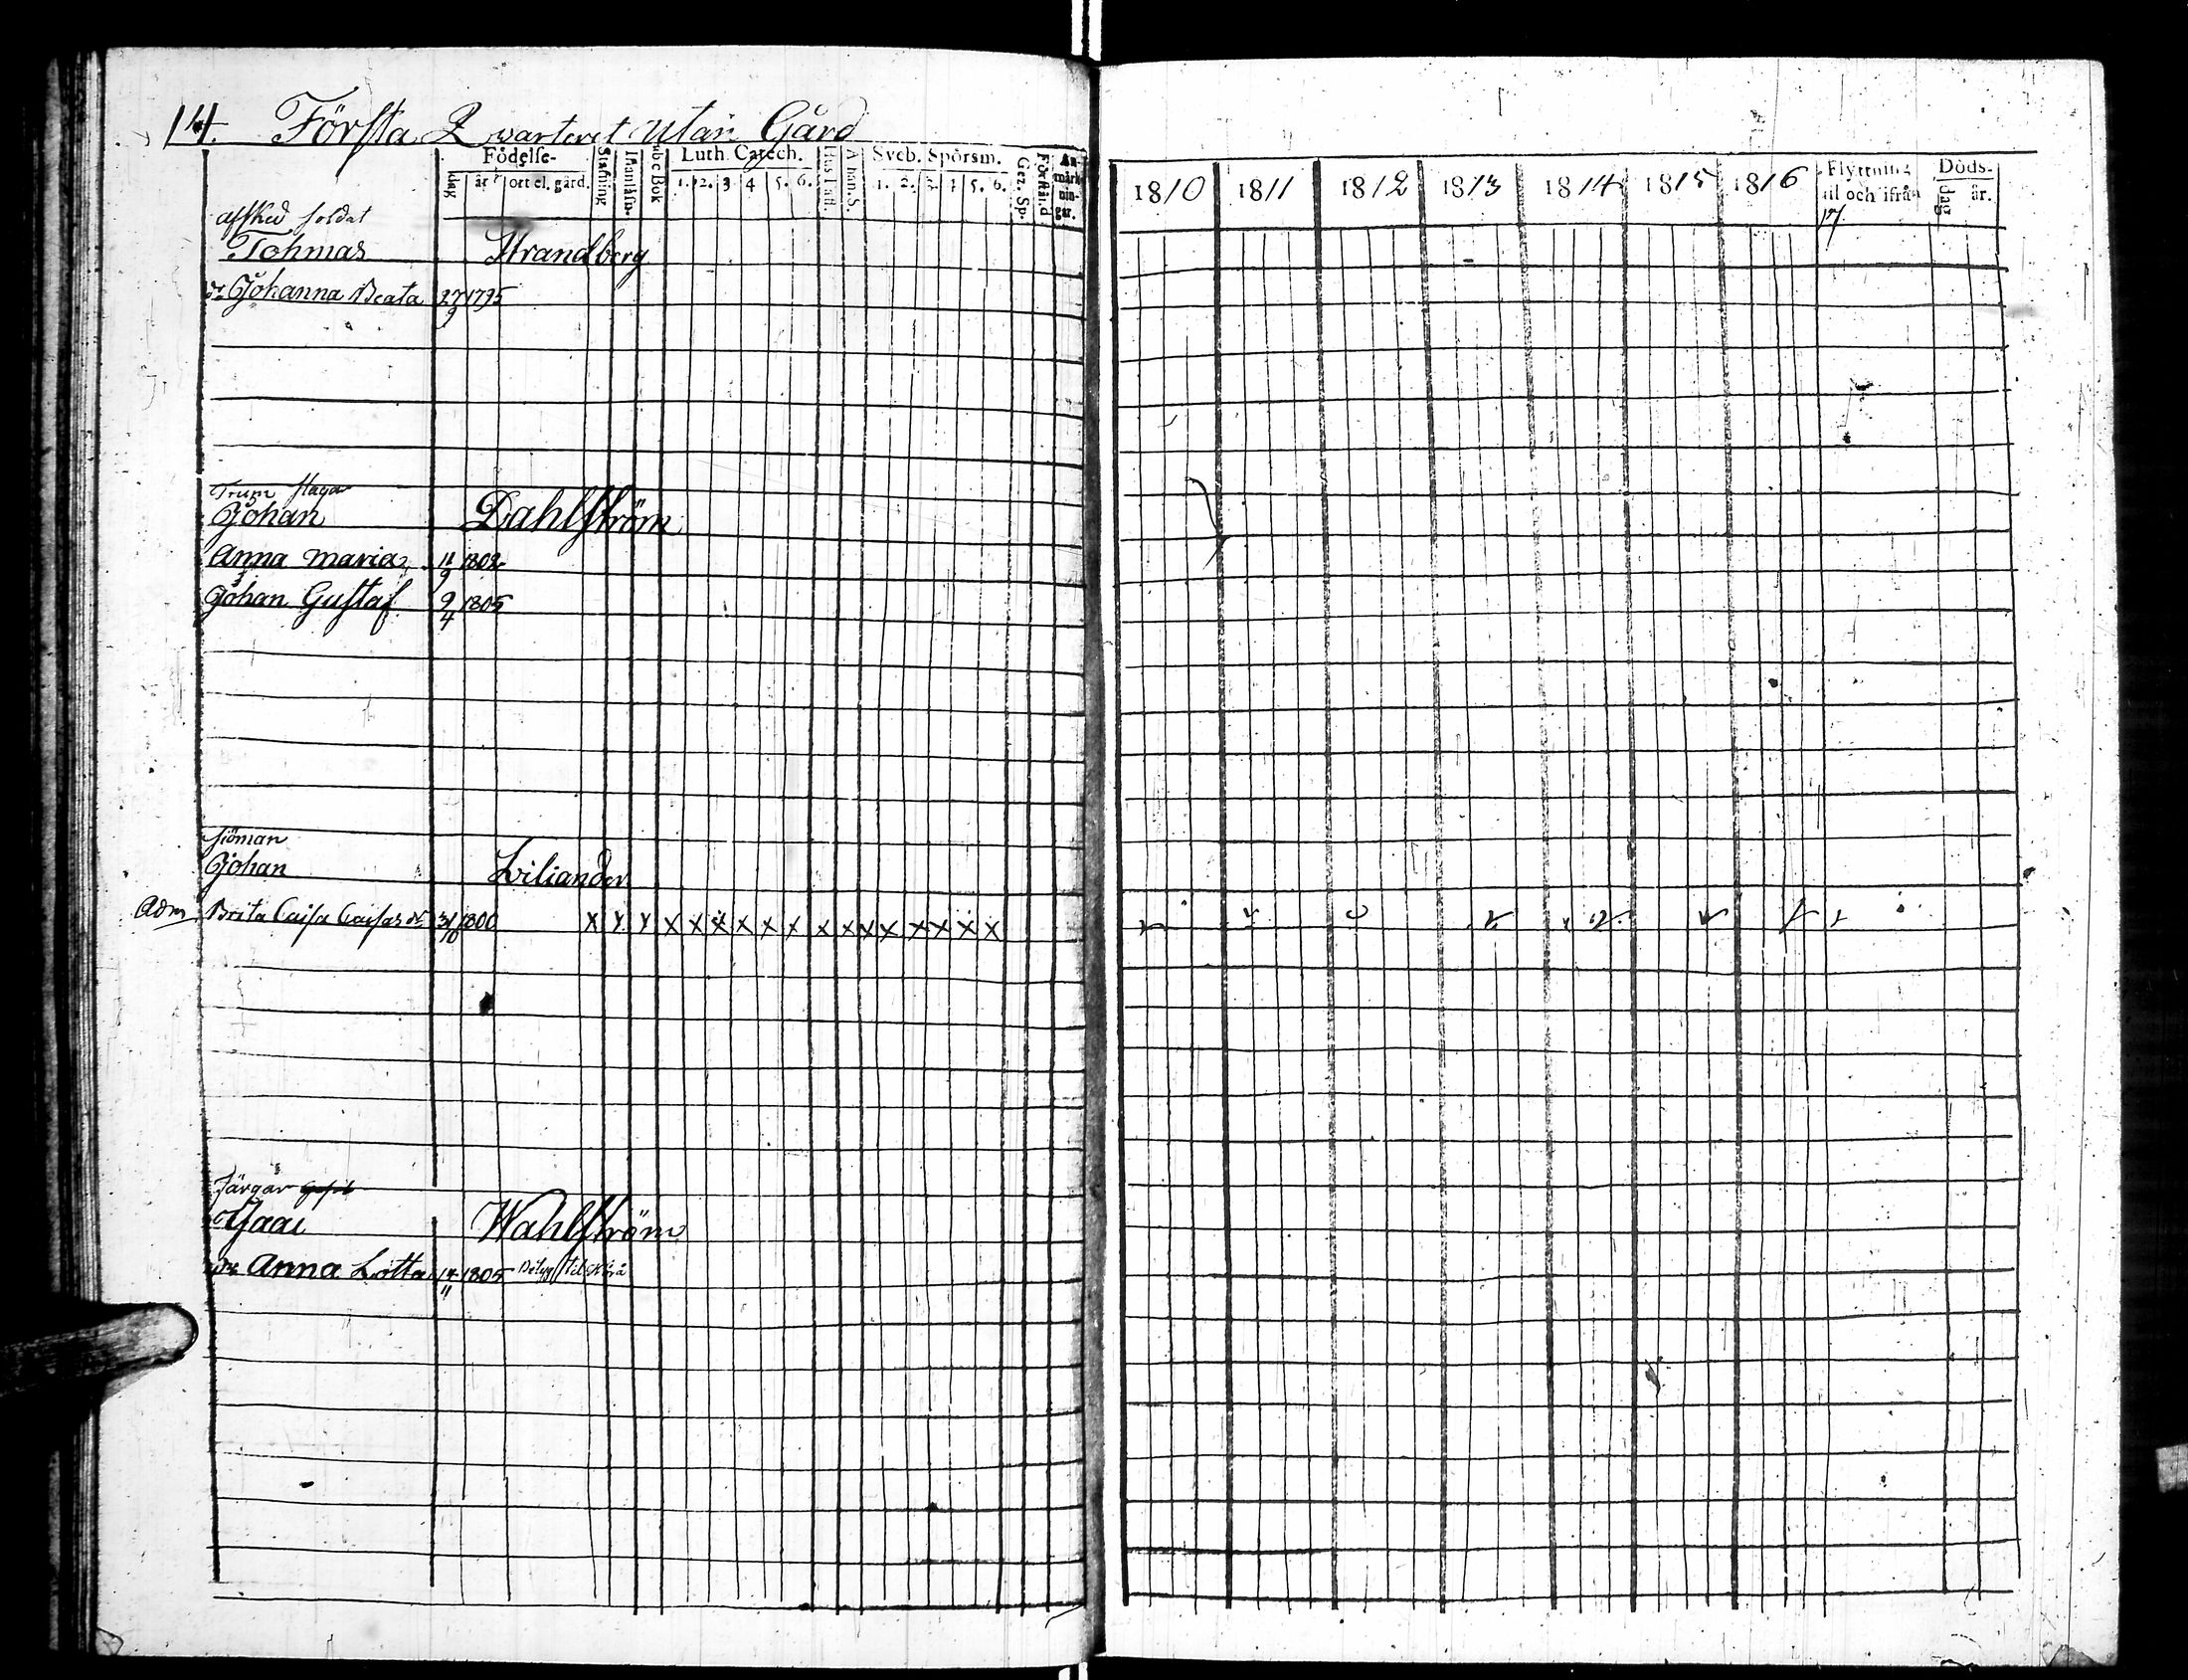 14. Första Qwarteret utan Gård
Födelse- dag år ort el. gård. Stafning Innanläsn. Abc Bok Luth. Catech. 1. 2. 3 4 5. 6. Hus Tafl. Athan. S. Sveb. Spörsm. 1. 2. 3. 4 5. 6. Gez. Sp. Förstånd An-märk-nin-gar.
1810 1811 1812 1813 1814 1815 1816 Flyttning til och ifrån Döds- dag år.
17
afsked soldat
Tohmas Strandberg
dr Johanna Beata 27/9 1795
Trum slagar
Johan Dahlström
Anna Maria 11/9 1802
Johan Gustaf 9/4 1805
sjöman
Johan Liliander
Adm Brita Caisa Caisas dr 31/10 1800 x x x x x x x x x x x x x x x x x
Färgar
Isaac Wahlström
dr Anna Lotta 14/11 1805